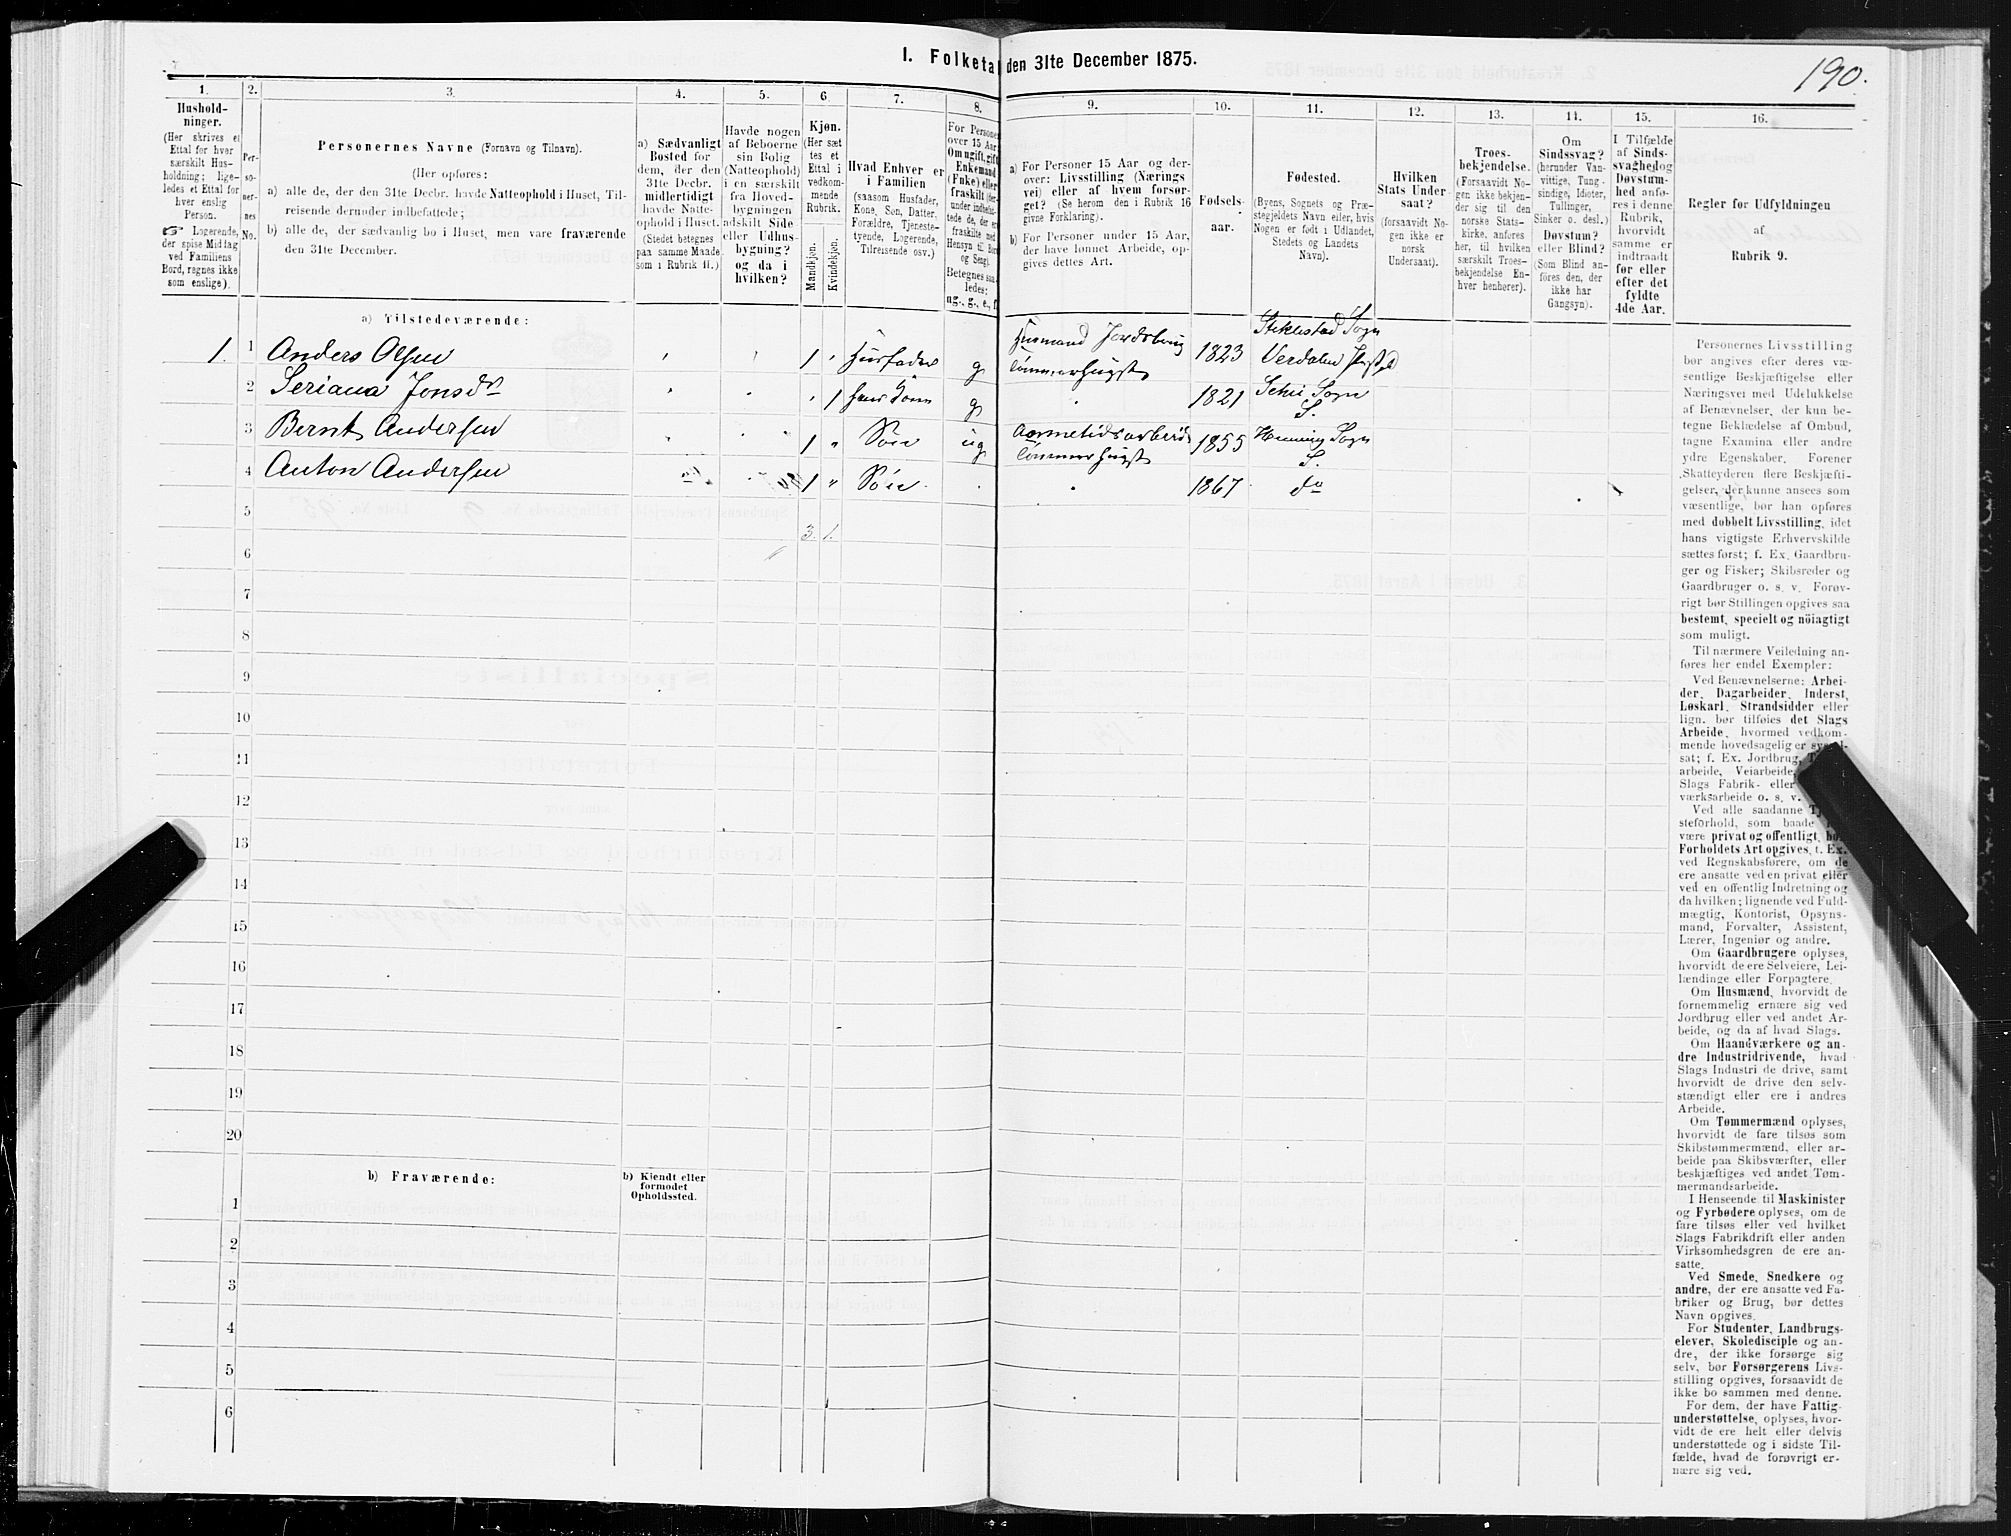 I. Folketal den 31te December 1875.
190.
1.
2.
3.
4.
5.
6.
7.
8.
9.
10.
11.
12.
13.
14.
15.
16.
Hushold-
ninger.
(Her skrives et
Ettal for hver
særskilt Hus-
holdning; lige-
ledes et Ettal for
hver enslig
Person.
☞ Logerende,
der spise Middag
ved Familiens
Bord, regnes ikke
som enslige).
Per-
so-
ner-
nes
No.
Personernes Navne (Fornavn og Tilnavn).
(Her opføres:
a) alle de, der den 31te Decbr. havde Natteophold i Huset, Til-
reisende derunder indbefattede;
b) alle de, der sædvanlig bo i Huset, men vare fraværende
den 31te December.
a) Sædvanligt
Bosted for
dem, der den
31te Decbr.
midlertidigt
havde Natte-
ophold i Huset.
(Stedet betegnes
paa samme Maade
som i Rubrik 11.)
Havde nogen
af Beboerne
sin Bolig
(Natteophold)
i en særskilt
fra Hoved-
bygningen
adskilt Side
eller Udhus-
bygning?
og da i
hvilken?
Kjøn.
(Her sæt
tes et
Ettal i
vedkom-
mende
Rubrik.
Mandkjøn.
Kvindekjøn.
Hvad Enhver er
i Familien
(saasom Husfader,
Kone, Søn, Datter,
Forældre, Tjeneste-
tyende, Logerende,
Tilreisende osv.)
For Personer
over 15 Aar:
Om ugift, gift,
Enkemand
(Enke) eller
fraskilt (der-
under indbefat-
tede de, der ere
fraskilte med
Hensyn til Bord
og Seng).
Betegnes saa-
ledes:
ug., g., e., f.
a) For Personer 15 Aar og der-
over: Livsstilling (Nærings
vei) eller af hvem forsør-
get? (Se herom den i Rubrik 16
givne Forklaring).
b) For Personer under 15 Aar,
der have lønnet Arbeide, op-
gives dettes Art.
Fødsels-
aar.
Fødested.
(Byens, Sognets og Præ-
stegjeldets Navn eller, hvis
Nogen er født i Udlandet,
Stedets og Landets
Navn).
Hvilken
Stats Under-
saat?
(forsaavidt No-
gen ikke er
norsk
Undersaat).
Troes-
bekjendelse.
(Forsaavidt No-
gen ikke bekjen-
der sig til den
norske Stats-
kirke, anføres
her, til hvilken
særskilt Troes-
bekjendelse En-
hver henhører).
Om
Sindssvag?
(herunder Van-
vittige, Tung-
sindige, Idioter,
Tullinger,
Sinker o. desl.)
Døvstum?
eller Blind?
(Som Blind an-
føres den, der
ikke har
Gangsyn).
I Tilfælde
af Sinds-
svaghed og
Døvstum-
hed anfø-
res i denne
Rubrik,
hvorvidt
samme er
indtraadt
før eller
efter det
fyldte
4de Aar.
Regler før Udfyldningen
af
Rubrik 9.
a) Tilstedeværende:
1. 1 Anders Olsen 1 Husfader g Husmand Jordbrug Tømmerhugst 1823 Stiklestad Sogn Verdalen Prstgld
2 Seriana Jonsdr 1 g 1821 Sogn S.
3 Bernt Andersen 1 " Søn ug Tømmerhugst 1855 Henning Sogn S.
4 Anton Andersen 1 " Søn 1867 do
5
3. 1.
6
7
8
9
10
11
12
13
14
15
16
17
18
19
20
b) Fraværende:
b) Kjendt eller
formodet
Opholdssted.
1
2
3
4
5
6
Personernes Livsstilling
bør angives efter deres væ-
sentlige Beskjæftigelse eller
Næringsvei med Udelukkelse
af Benævnelser, der kun be-
tegne Beklædelse af Ombud,
tagne Examina eller andre
ydre Egenskaber. Forener
Skatteyderen flere Beskjæfti-
gelser, der kunne ansees som
væsentlige, bør han opføres
med dobbelt Livsstilling, idet
hans vigtigste Erhvervskilde
sættes først; f. Ex. Gaardbru-
ger og Fisker; Skibsreder og
Gaardbruger o. s. v. Forøv-
rigt bør Stillingen opgives saa
bestemt, specielt og nöiagtigt
som muligt.
Til nærmere Veiledning an-
føres her endel Exempler:
Ved Benævnelserne: Arbei-
der, Dagarbeider, Inderst,
Løskarl, Strandsidder eller
lign. bør tilføies det Slags
Arbeide, hvormed vedkom-
mende hovedsagelig er syssel-
sat; f. Ex. Jordbrug,
arbeide, Veiarbeide,
Slags Fabrik- eller
værksarbeide o. s. v.
Ved alle saadanne
steforhold, som baade
være privat og offentligt,
Forholdets Art opgives, f. Ex.
ved Regnskabsførere, om de
ere ansatte ved en privat eller
ved en offentlig Indretning og
da hvilken; lignende ved Fuld-
mægtig, Kontorist, Opsyns-
mand, Forvalter, Assistent,
Lærer, Ingeniør og andre.
Om Gaardbrugere oplyses,
hvorvidt de ere Selveiere, Lei-
lændinge eller Forpagtere.
Om Husmænd, hvorvidt de
fornemmelig ernære sig ved
Jordbrug eller ved andet Ar-
beide, og da af hvad Slags.
Om Haandværkere og an-
dre Industridrivende, hvad
Slags Industri de drive, samt
hvorvidt de drive den selv-
stændigt eller ere i andres
Arbeide.
Om Tømmermænd oplyses,
hvorvidt de fare tilsøs som
Skibstømmermænd, eller ar-
beide paa Skibsværfter, eller
beskjæftiges ved andet Tøm-
mermandsarbeide.
I Henseende til Maskinister
og Fyrbødere oplyses, om de
fare tilsøs eller ved hvilket
Slags Fabrikdrift eller anden
Virksomhedsgren de ere an-
satte.
Ved Smede, Snedkere og
andre, der ere ansatte ved Fa-
briker og Brug, bør dettes
Navn opgives.
For Studenter, Landbrugs-
elever, Skoledisciple og an-
dre, der ikke forsørge sig
selv, bør Forsørgerens Livs-
stilling opgives, forsaavidt de
ikke bo sammen med denne.
For dem, der have Fattig-
understøttelse, oplyses, hvor-
vidt de ere helt eller delvis
understøttede og i sidste Til-
fælde, hvad de forøvrigt er-
nære sig ved.